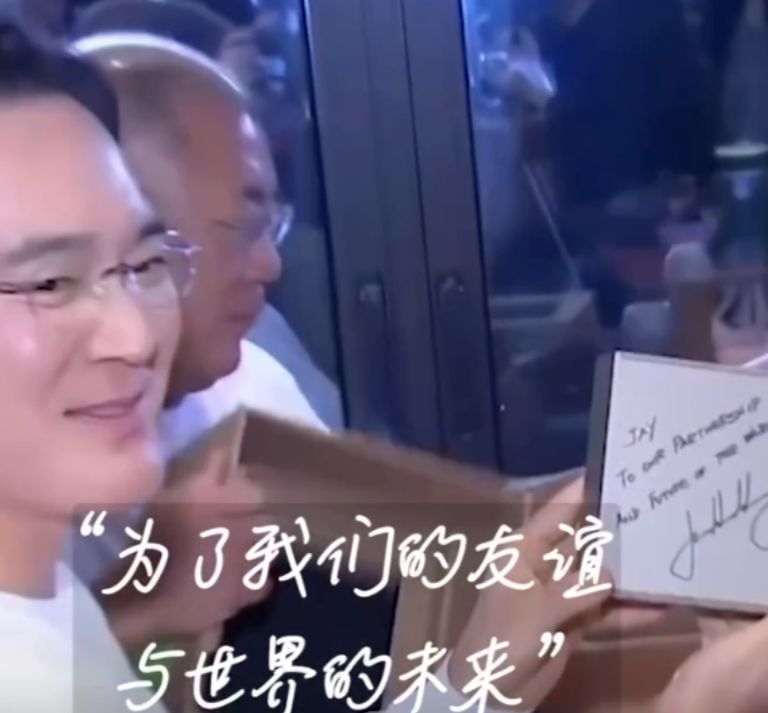 JAY
TO OUR PARTNERSHIP
AND FUTURE OF THE WORLD
“为了我们的友谊
与世界的未来”